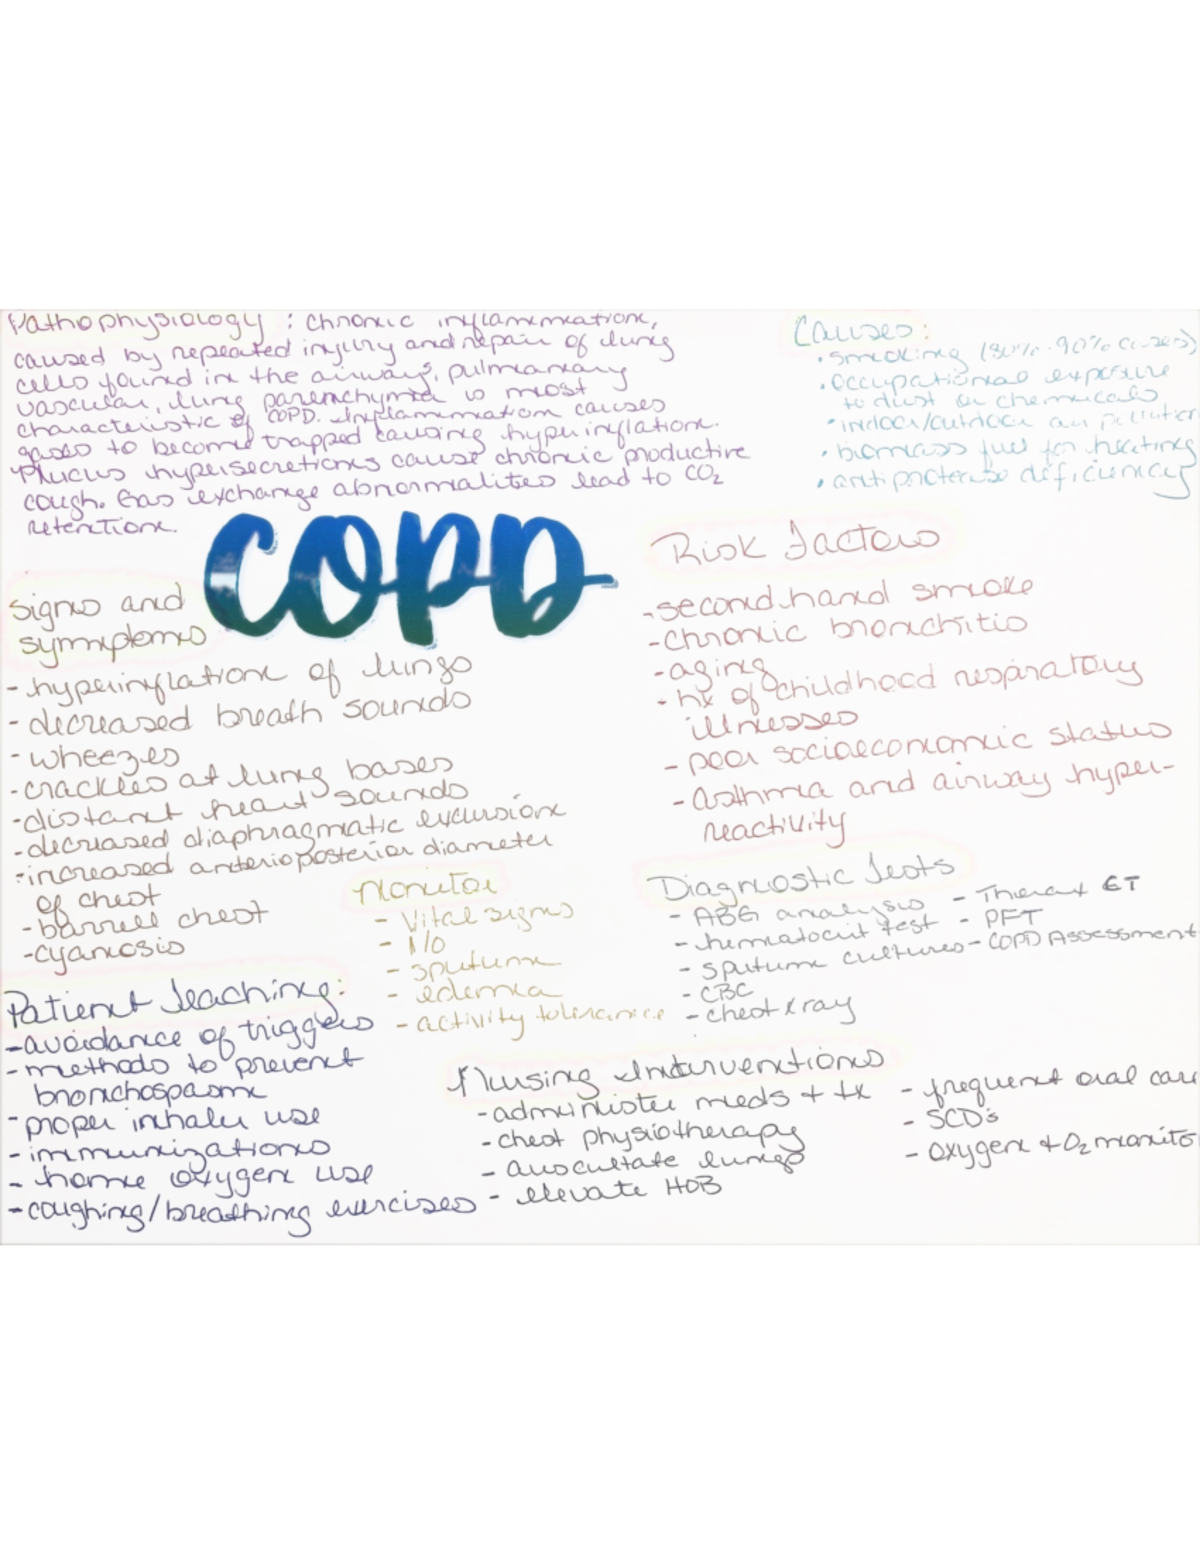 Pathophysiology : chronic inflammation,
caused by repeated injury and repair of lung
cells found in the airways, pulmonary
vascular, lung parenchyma is most
characteristic of COPD. Inflammation causes
gases to become trapped causing hyperinflation.
Mucus hypersecretions cause chronic productive
cough. Gas exchange abnormalities lead to CO2
retention.
Causes:
• smoking (80%-90% cases)
• occupational exposure
to dust or chemicals
• indoor/outdoor air pollution
• biomass fuel for heating
• antiprotease deficiency
COPD
Signs and
symptoms
- hyperinflation of lungs
- decreased breath sounds
- wheezes
- crackles at lung bases
- distant heart sounds
- decreased diaphragmatic excursion
- increased anterioposterior diameter
of chest
- barrell chest
- cyanosis
Risk Factors
- second hand smoke
- chronic bronchitis
- aging
- hx of childhood respiratory
illnesses
- poor socioeconomic status
- asthma and airway hyper-
reactivity
Monitor
- Vital signs
- I/O
- sputum
- edema
- activity tolerance
Diagnostic Tests
- ABG analysis
- hematocrit test
- sputum cultures
- CBC
- chest x ray
- Thorax CT
- PFT
- COPD Assessment
Patient Teaching:
- avoidance of triggers
- methods to prevent
bronchospasm
- proper inhaler use
- immunizations
- home oxygen use
- coughing/breathing exercises
Nursing Interventions
- administer meds + tx
- chest physiotherapy
- auscultate lungs
- elevate HOB
- frequent oral care
- SCD's
- oxygen + O2 monitor